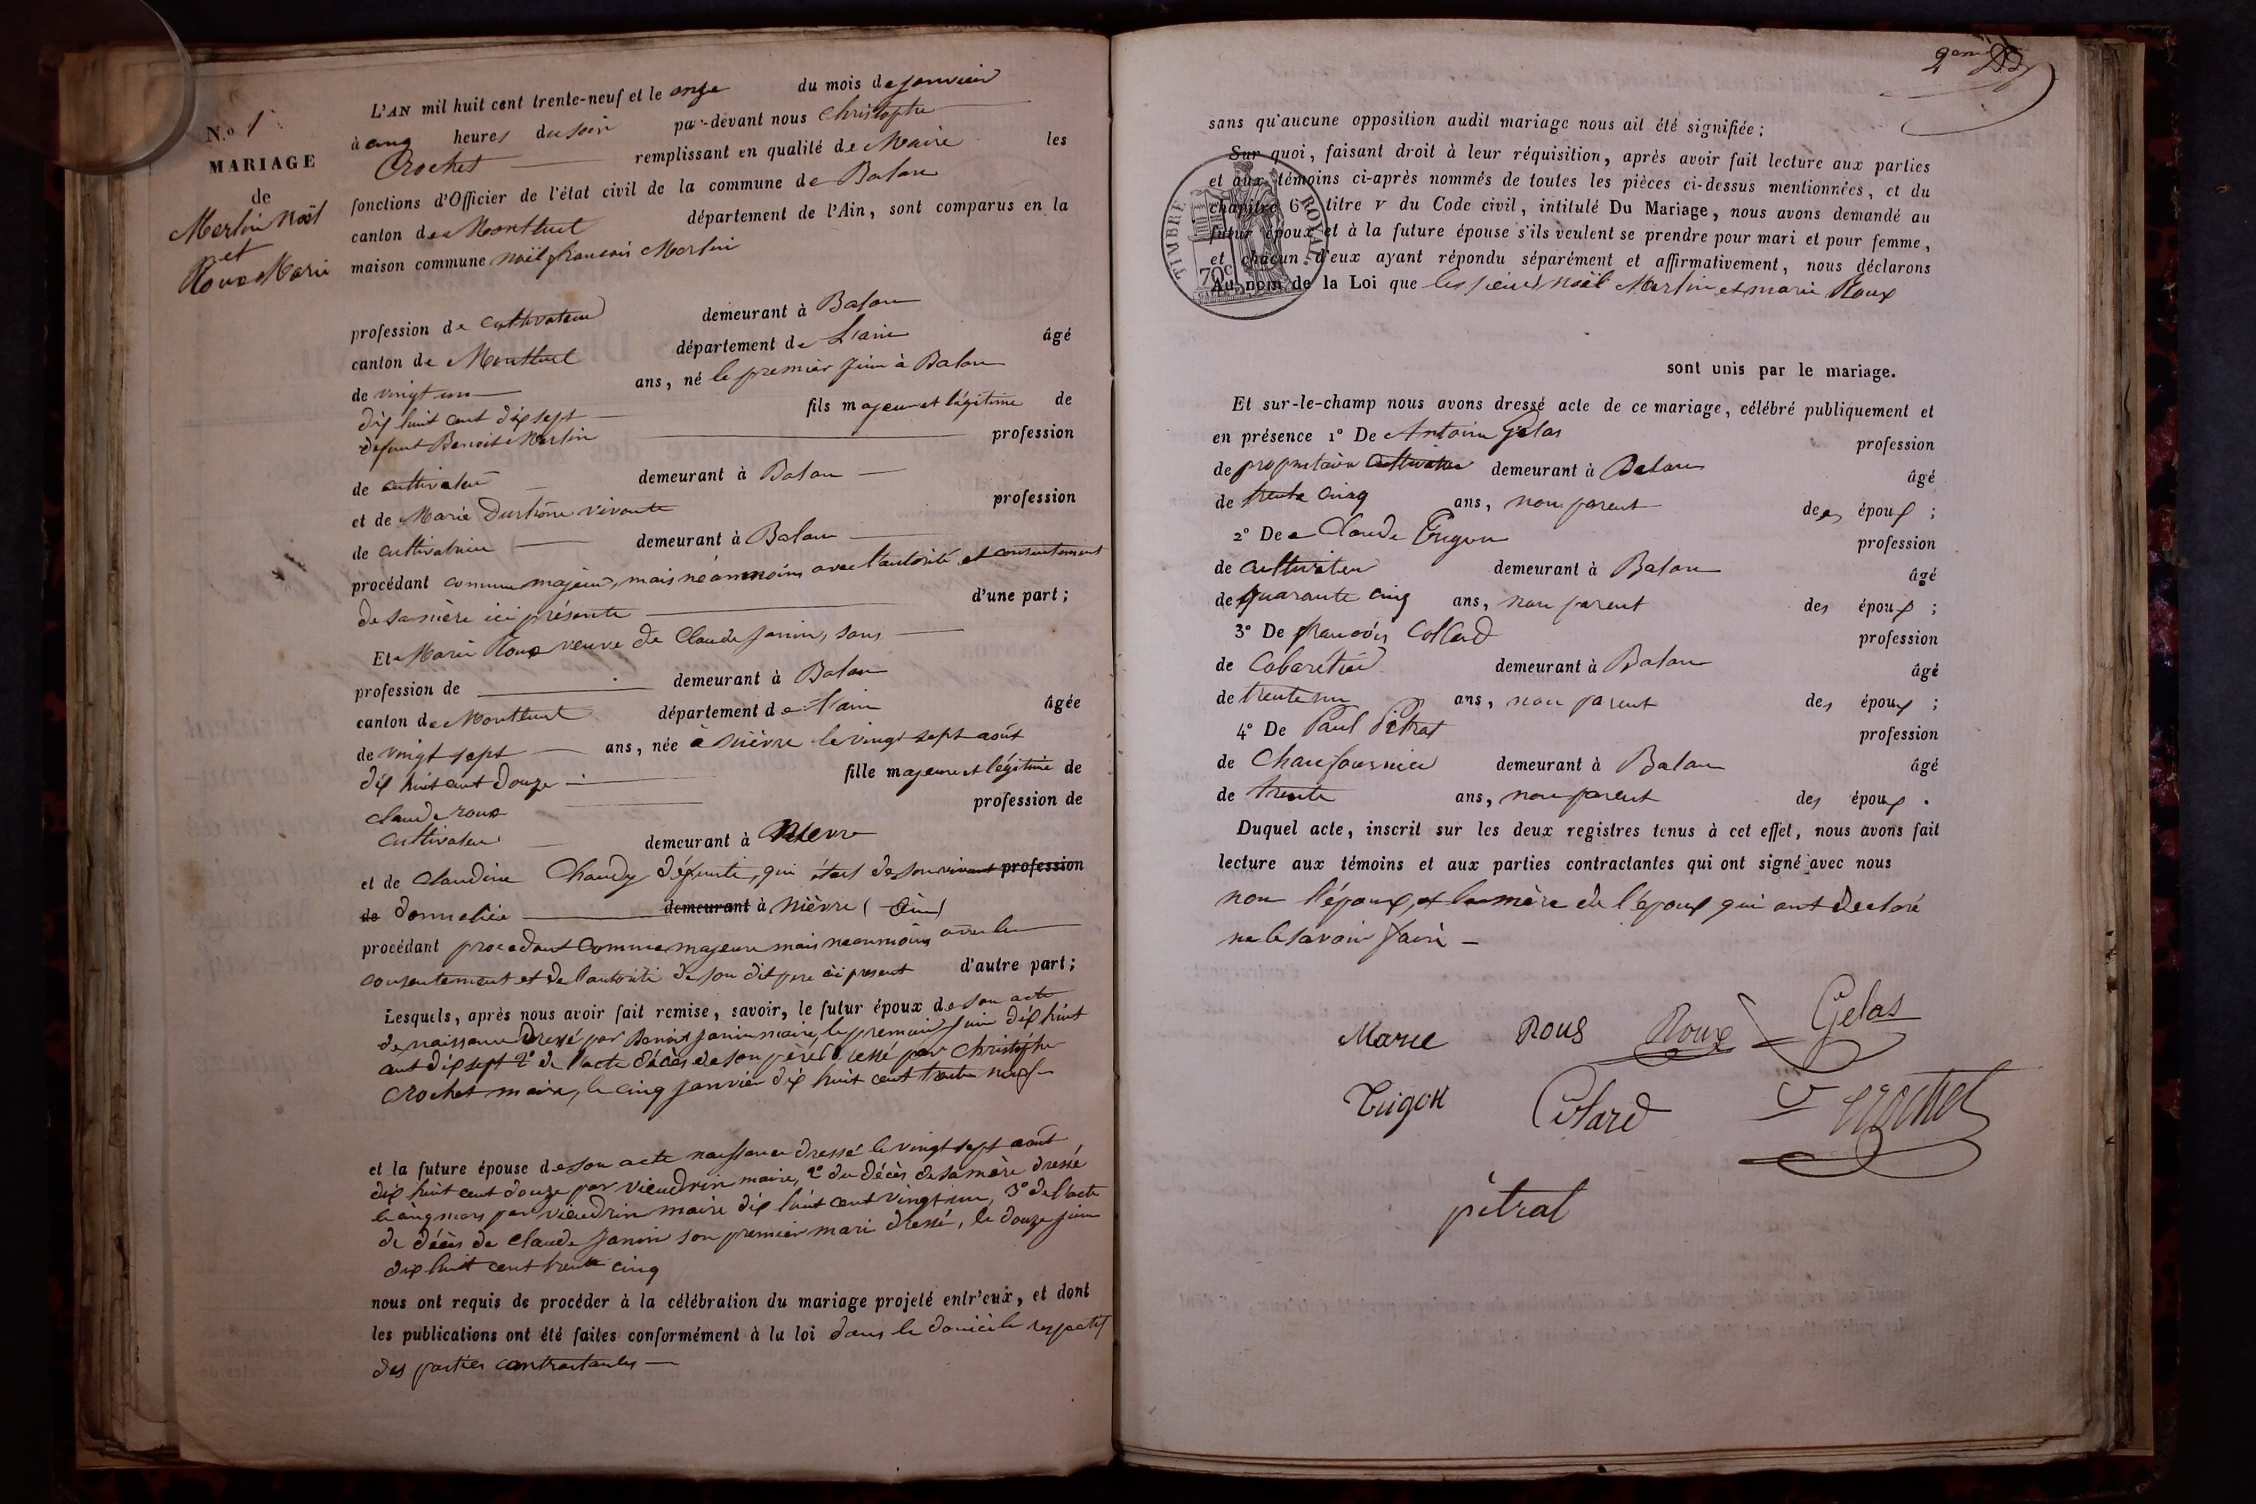 N.o 1
MARIAGE
de
Merlin Noël
et
Roux Marie
L'AN mil huit cent trente-neuf et le onze du mois de janvier
à cinq heures du soir par-devant nous Christophe
Crochet remplissant en qualité de Maire les
fonctions d'Officier de l'état civil de la commune de Balan
canton de Montluel département de l'Ain, sont comparus en la
maison commune noël françois Merlin
profession de cultivateur demeurant à Balan
canton de Montluel département de L'ain âgé
de vingt un ans, né le premier juin à Balan
dix huit cent dix sept fils majeur et légitime de
défunt Benoit Merlin profession
de cultivateur demeurant à Balan
et de Marie vivante profession
de cultivatrice demeurant à Balan
procédant comme majeur, mais néammoins avec l'autorité et consentement
de sa mère ici présente d'une part;
Et Marie Roux veuve de Claude Janin, sans
profession de demeurant à Balan
canton de Montluel département de l'ain âgée
de vingt sept ans, née à Nièvre le vingt sept août
dix huit cent douze fille majeure et légitime de
claude roux profession de
cultivateur demeurant à Nievre
et de Claudine Chaudy défunte, qui étais de son vivant profession
de domeliée demeurant à Nièvre (Ain)
procédant procedant comme majeure mais neanmoins avec le
consentement et de l'autorité de son dit pere ici present d'autre part;
Lesquels, après nous avoir fait remise, savoir, le futur époux de son acte
de naissance dressé par Benoit Janin maire, le premier juin dix huit
cent dix sept 2° de l'acte décès de son père dressé par Christophe
Crochet maire, le cinq janvier dix huit cent trente neuf
et la future épouse de son acte naissance dressé le vingt sept août
dix huit cent douze par vieudrin maire, 2° du décès de sa mère dressé
le cinq mars par vieudrin maire dix huit cent vingt un, 3° de l'acte
de décès de Claude Janin son premier mari dressé, le douze juin
dix huit cent trente cinq
nous ont requis de procéder à la célébration du mariage projeté entr'eux, et dont
les publications ont été faites conformément à la loi dans le domicile respectif
des parties contractantes
sans qu'aucune opposition audit mariage nous ait été signifiée;
Sur quoi, faisant droit à leur réquisition, après avoir fait lecture aux parties
et aux témoins ci-après nommés de toutes les pièces ci-dessus mentionnées, et du
chapitre 6 titre v du Code civil, intitulé Du Mariage, nous avons demandé au
futur époux et à la future épouse s'ils veulent se prendre pour mari et pour femme,
et chacun d'eux ayant répondu séparément et affirmativement, nous déclarons
Au nom de la Loi que les sieurs Noël Merlin et marie Roux
TIMBRE ROYAL.
70c
sont unis par le mariage.
Et sur-le-champ nous avons dressé acte de ce mariage, célébré publiquement et
en présence 1° De Antoine Gelas profession
de propriétaire cultivateur demeurant à Balan âgé
de trente cinq ans, non parent des époux ;
2° De Claude Trigon profession
de cultivateur demeurant à Balan âgé
de quarante cinq ans, non parent des époux ;
3° De françois Collard profession
de Cabaretier demeurant à Balan âgé
de trente un ans, non parent des époux ;
4° De Paul Pitrat profession
de Chaufournier demeurant à Balan âgé
de trente ans, non parent des époux .
Duquel acte, inscrit sur les deux registres tenus à cet effet, nous avons fait
lecture aux témoins et aux parties contractantes qui ont signé avec nous
non l'époux, et la mère de l'époux qui ont declaré
ne le savoir faire
Marie Rous Roux Gelas
Trigon Colard Crochet
pitrat